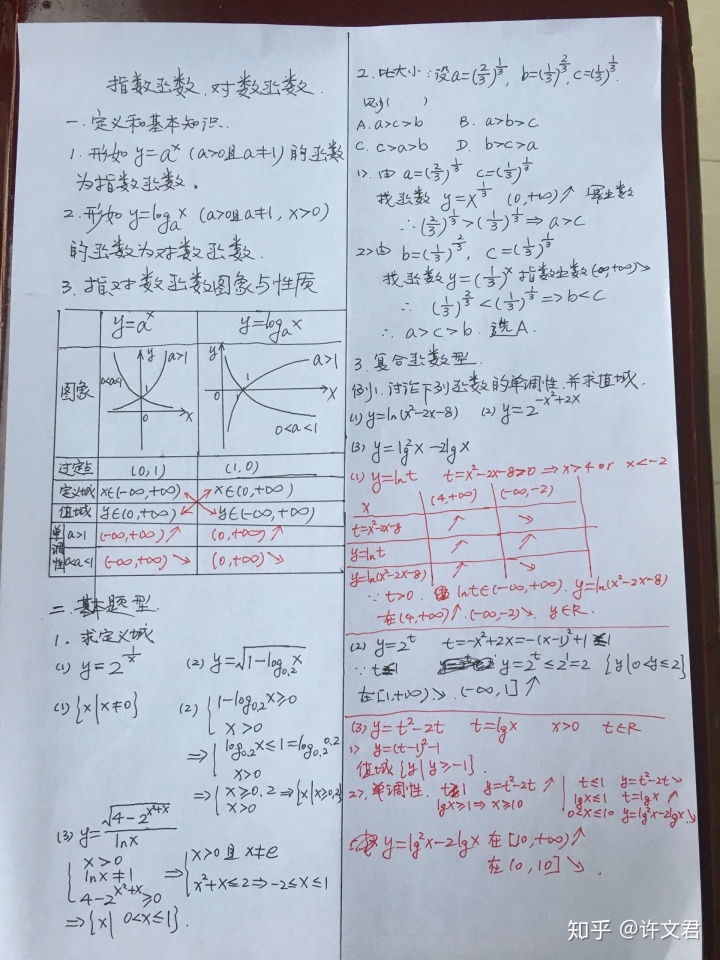 指数函数、对数函数.
一.定义和基本知识.
1.形如 y=a^x (a>0且a≠1)的函数
为指数函数。
2.形如 y=log_a x (a>0且a≠1, x>0)
的函数为对数函数.
3.指对数函数图象与性质
y=a^x y=log_a x
图象 0<a<1 y a>1 1 0 x y a>1 0 1 x 0<a<1
过定点 (0,1) (1,0)
定义域 x∈(-∞,+∞) x∈(0,+∞)
值域 y∈(0,+∞) y∈(-∞,+∞)
单调性 a>1 (-∞,+∞)↗ (0,+∞)↗
0<a<1 (-∞,+∞)↘ (0,+∞)↘
二.基本题型.
1.求定义域
(1) y=2^(1/x) (2) y=√(1-log_0.2 x)
(1){x|x≠0} (2){1-log_0.2 x≥0
x>0
⇒{log_0.2 x≤1=log_0.2 0.2
x>0
⇒{x≥0.2 ⇒{x|x≥0.2}
x>0
(3) y=√(4-2^(x²+x))/lnx
{x>0
lnx≠1 ⇒{x>0且x≠e
4-2^(x²+x)≥0 x²+x≤2⇒-2≤x≤1
⇒{x|0<x≤1}.
2.比大小:设a=(2/3)^(1/3), b=(1/3)^(2/3), c=(1/3)^(1/3).
则( )
A. a>c>b B. a>b>c
C. c>a>b D. b>c>a
1>.由 a=(2/3)^(1/3) c=(1/3)^(1/3)
找函数 y=x^(1/3) (0,+∞)↗ 幂函数
∴(2/3)^(1/3)>(1/3)^(1/3)⇒a>c
2>由 b=(1/3)^(2/3), c=(1/3)^(1/3)
找函数y=(1/3)^x 指数函数(-∞,+∞)↘
∴ (1/3)^(2/3)<(1/3)^(1/3)=>b<c
∴ a>c>b. 选A.
3.复合函数型.
例1.讨论下列函数的单调性.并求值域.
(1) y=ln(x²-2x-8) (2) y=2^(-x²+2x)
(3) y=lg²x-2lgx
(1) y=lnt t=x²-2x-8>0 ⇒x>4 or x<-2
x (4,+∞) (-∞,-2)
t=x²-2x-8 ↗ ↘
y=lnt ↗ ↗
y=ln(x²-2x-8) ↗ ↘
∵t>0. lnt∈(-∞,+∞). y=ln(x²-2x-8)
在(4,+∞)↗.(-∞,-2)↘. y∈R.
(2) y=2^t t=-x²+2x=-(x-1)²+1≤1
∵t≤1 y=2^t≤2^1=2 {y|0<y≤2}
在[1,+∞)↘.(-∞,1]↗
(3) y=t²-2t t=lgx x>0 t∈R
1> y=(t-1)²-1
值域{y|y≥-1}.
2>.单调性. t≥1 y=t²-2t↗ t≤1 y=t²-2t↘
lgx≥1⇒x≥10 lgx≤1 t=lgx↗
0<x≤10 y=lg²x-2lgx↘
y=lg²x-2lgx 在[10,+∞)↗
在(0,10]↘.
知乎 @许文君